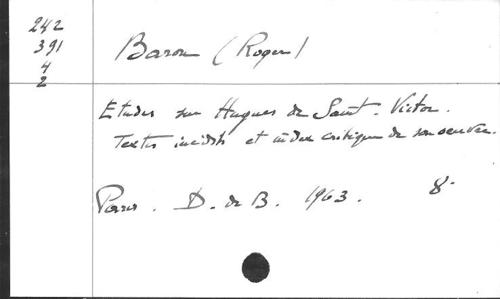 242
391
4
2
Baron (Roger)
Etudes sur Hugues de Saint-Victor.
Textes inédits et index critique de son oeuvre.
Paris. D. de B. 1963. 8°